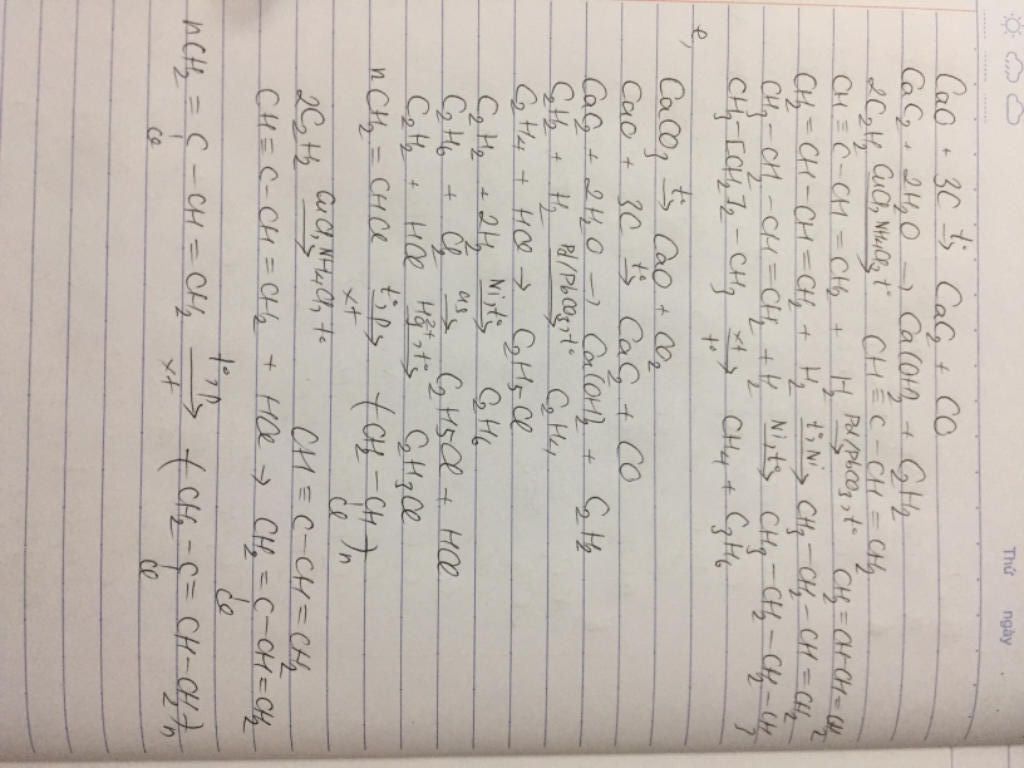 Thứ ngày
CaO + 3C →(t°) CaC₂ + CO
CaC₂ + 2H₂O → Ca(OH)₂ + C₂H₂
2C₂H₂ →(CuCl, NH₄Cl, t°) CH≡C-CH=CH₂
CH≡C-CH=CH₂ + H₂ →(Pd/PbCO₃, t°) CH₂=CH-CH=CH₂
CH₂=CH-CH=CH₂ + H₂ →(t°, Ni) CH₃-CH₂-CH=CH₂
CH₃-CH₂-CH=CH₂ + H₂ →(Ni, t°) CH₃-CH₂-CH₂-CH₃
CH₃-[CH₂]₂-CH₃ →(xt, t°) CH₄ + C₃H₆
e,
CaCO₃ →(t°) CaO + CO₂
CaO + 3C →(t°) CaC₂ + CO
CaC₂ + 2H₂O → Ca(OH)₂ + C₂H₂
C₂H₂ + H₂ →(Pd/PbCO₃, t°) C₂H₄
C₂H₄ + HCl → C₂H₅-Cl
C₂H₂ + 2H₂ →(Ni, t°) C₂H₆
C₂H₆ + Cl₂ →(as) C₂H₅Cl + HCl
C₂H₂ + HCl →(Hg²⁺, t°) C₂H₃Cl
nCH₂=CHCl →(t°, p, xt) (CH₂-CH)n
Cl
2C₂H₂ →(CuCl, NH₄Cl, t°) CH≡C-CH=CH₂
CH≡C-CH=CH₂ + HCl → CH₂=C-CH=CH₂
Cl
nCH₂=C-CH=CH₂ →(t°, p, xt) (CH₂-C=CH-CH₂)n
Cl Cl